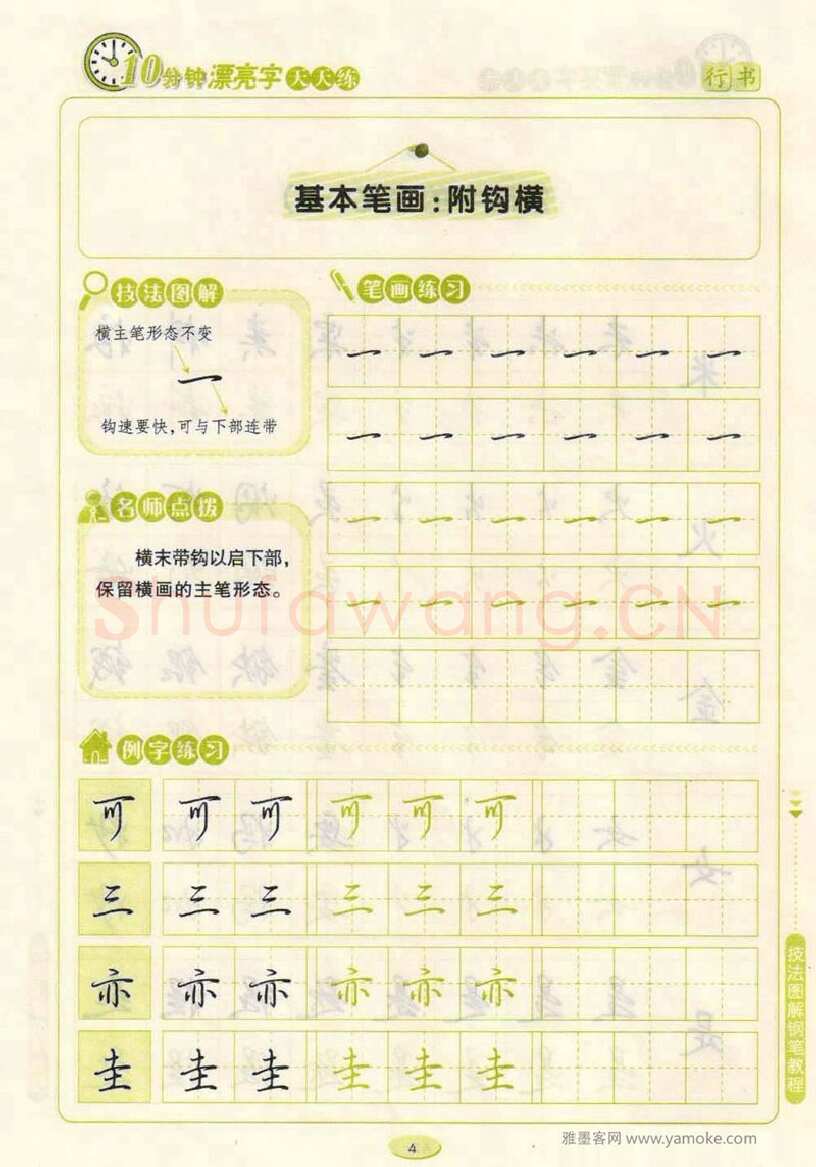 10分钟漂亮字天天练
行书
基本笔画:附钩横
技法图解
横主笔形态不变
钩速要快,可与下部连带
名师点拨
横末带钩以启下部,
保留横画的主笔形态。
笔画练习
一 一 一 一 一 一
一 一 一 一 一 一
一 一 一 一 一 一
一 一 一 一 一 一
Shufawang.CN
例字练习
可 可 可 可 可 可
三 三 三 三 三 三
亦 亦 亦 亦 亦 亦
圭 圭 圭 圭 圭 圭
技法图解钢笔教程
4
雅墨客网 www.yamoke.com